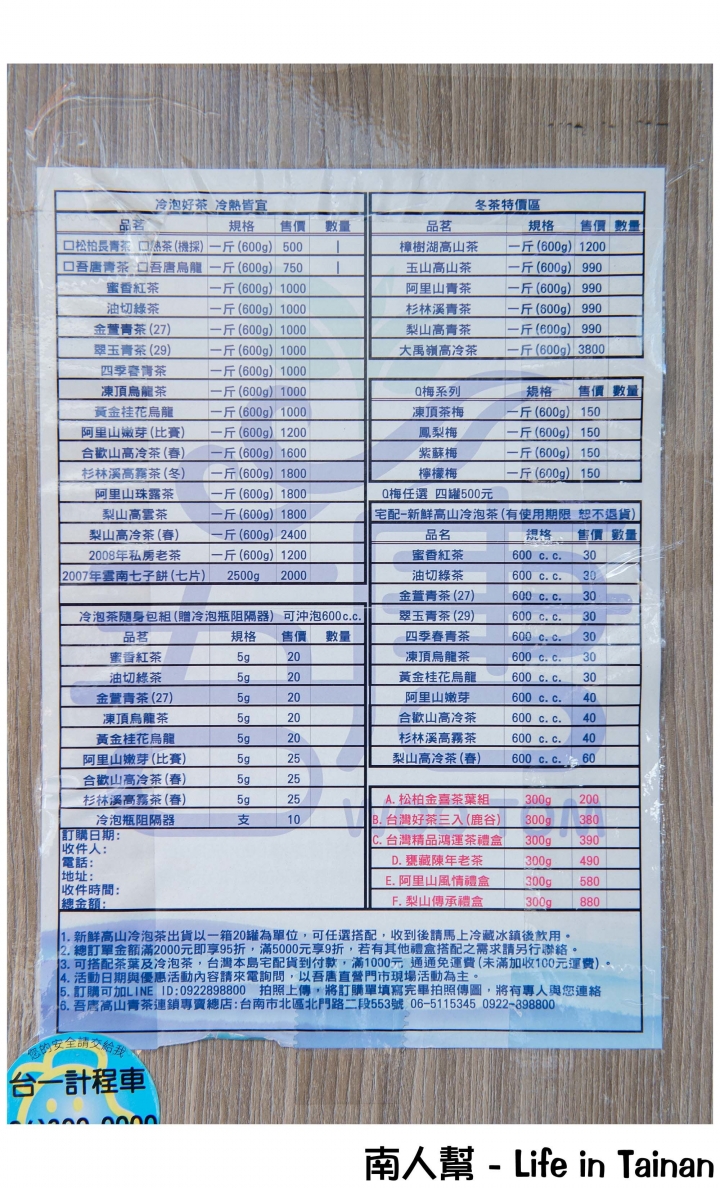 冷泡好茶 冷熱皆宜
品茗 規格 售價 數量
口松柏長青茶 口熟茶(機採) 一斤(600g) 500
口吾唐青茶 口吾唐烏龍 一斤(600g) 750
蜜香紅茶 一斤(600g) 1000
油切綠茶 一斤(600g) 1000
金萱青茶(27) 一斤(600g) 1000
翠玉青茶(29) 一斤(600g) 1000
四季春青茶 一斤(600g) 1000
凍頂烏龍茶 一斤(600g) 1000
黃金桂花烏龍 一斤(600g) 1000
阿里山嫩芽(比賽) 一斤(600g) 1200
合歡山高冷茶(春) 一斤(600g) 1600
杉林溪高霧茶(冬) 一斤(600g) 1800
阿里山珠露茶 一斤(600g) 1800
梨山高雲茶 一斤(600g) 1800
梨山高冷茶(春) 一斤(600g) 2400
2008年私房老茶 一斤(600g) 1200
2007年雲南七子餅(七片) 2500g 2000
冷泡茶隨身包組(贈冷泡瓶阻隔器) 可沖泡600c.c.
品茗 規格 售價 數量
蜜香紅茶 5g 20
油切綠茶 5g 20
金萱青茶(27) 5g 20
凍頂烏龍茶 5g 20
黃金桂花烏龍 5g 20
阿里山嫩芽(比賽) 5g 25
合歡山高冷茶(春) 5g 25
杉林溪高霧茶(春) 5g 25
冷泡瓶阻隔器 支 10
訂購日期:
收件人:
電話:
地址:
收件時間:
總金額:
冬茶特價區
品茗 規格 售價 數量
樟樹湖高山茶 一斤(600g) 1200
玉山高山茶 一斤(600g) 990
阿里山青茶 一斤(600g) 990
杉林溪青茶 一斤(600g) 990
梨山高青茶 一斤(600g) 990
大禹嶺高冷茶 一斤(600g) 3800
Q梅系列 規格 售價 數量
凍頂茶梅 一斤(600g) 150
鳳梨梅 一斤(600g) 150
紫蘇梅 一斤(600g) 150
檸檬梅 一斤(600g) 150
Q梅任選 四罐500元
宅配-新鮮高山冷泡茶(有使用期限 恕不退貨)
品名 規格 售價 數量
蜜香紅茶 600 c.c. 30
油切綠茶 600 c.c. 30
金萱青茶(27) 600 c.c. 30
翠玉青茶(29) 600 c.c. 30
四季春青茶 600 c.c. 30
凍頂烏龍茶 600 c.c. 30
黃金桂花烏龍 600 c.c. 30
阿里山嫩芽 600 c.c. 40
合歡山高冷茶 600 c.c. 40
杉林溪高霧茶 600 c.c. 40
梨山高冷茶(春) 600 c.c. 60
A. 松柏金喜茶葉組 300g 200
B. 台灣好茶三入(鹿谷) 300g 380
C. 台灣精品鴻運茶禮盒 300g 390
D. 甕藏陳年老茶 300g 490
E. 阿里山風情禮盒 300g 580
F. 梨山傳承禮盒 300g 880
1. 新鮮高山冷泡茶出貨以一箱20罐為單位，可任選搭配，收到後請馬上冷藏冰鎮後飲用。
2. 總訂單金額滿2000元即享95折，滿5000元享9折，若有其他禮盒搭配之需求請另行聯絡。
3. 可搭配茶葉及冷泡茶，台灣本島宅配貨到付款，滿1000元 通通免運費(未滿加收100元運費)。
4. 活動日期與優惠活動內容請來電詢問，以吾唐直營門市現場活動為主。
5. 訂購可加LINE ID:0922898800 拍照上傳，將訂購單填寫完畢拍照傳圖，將有專人與您連絡
6. 吾唐高山青茶連鎖專賣總店:台南市北區北門路二段553號 06-5115345 0922-898800
您的安全請交給我
台一計程車
南人幫 - Life in Tainan